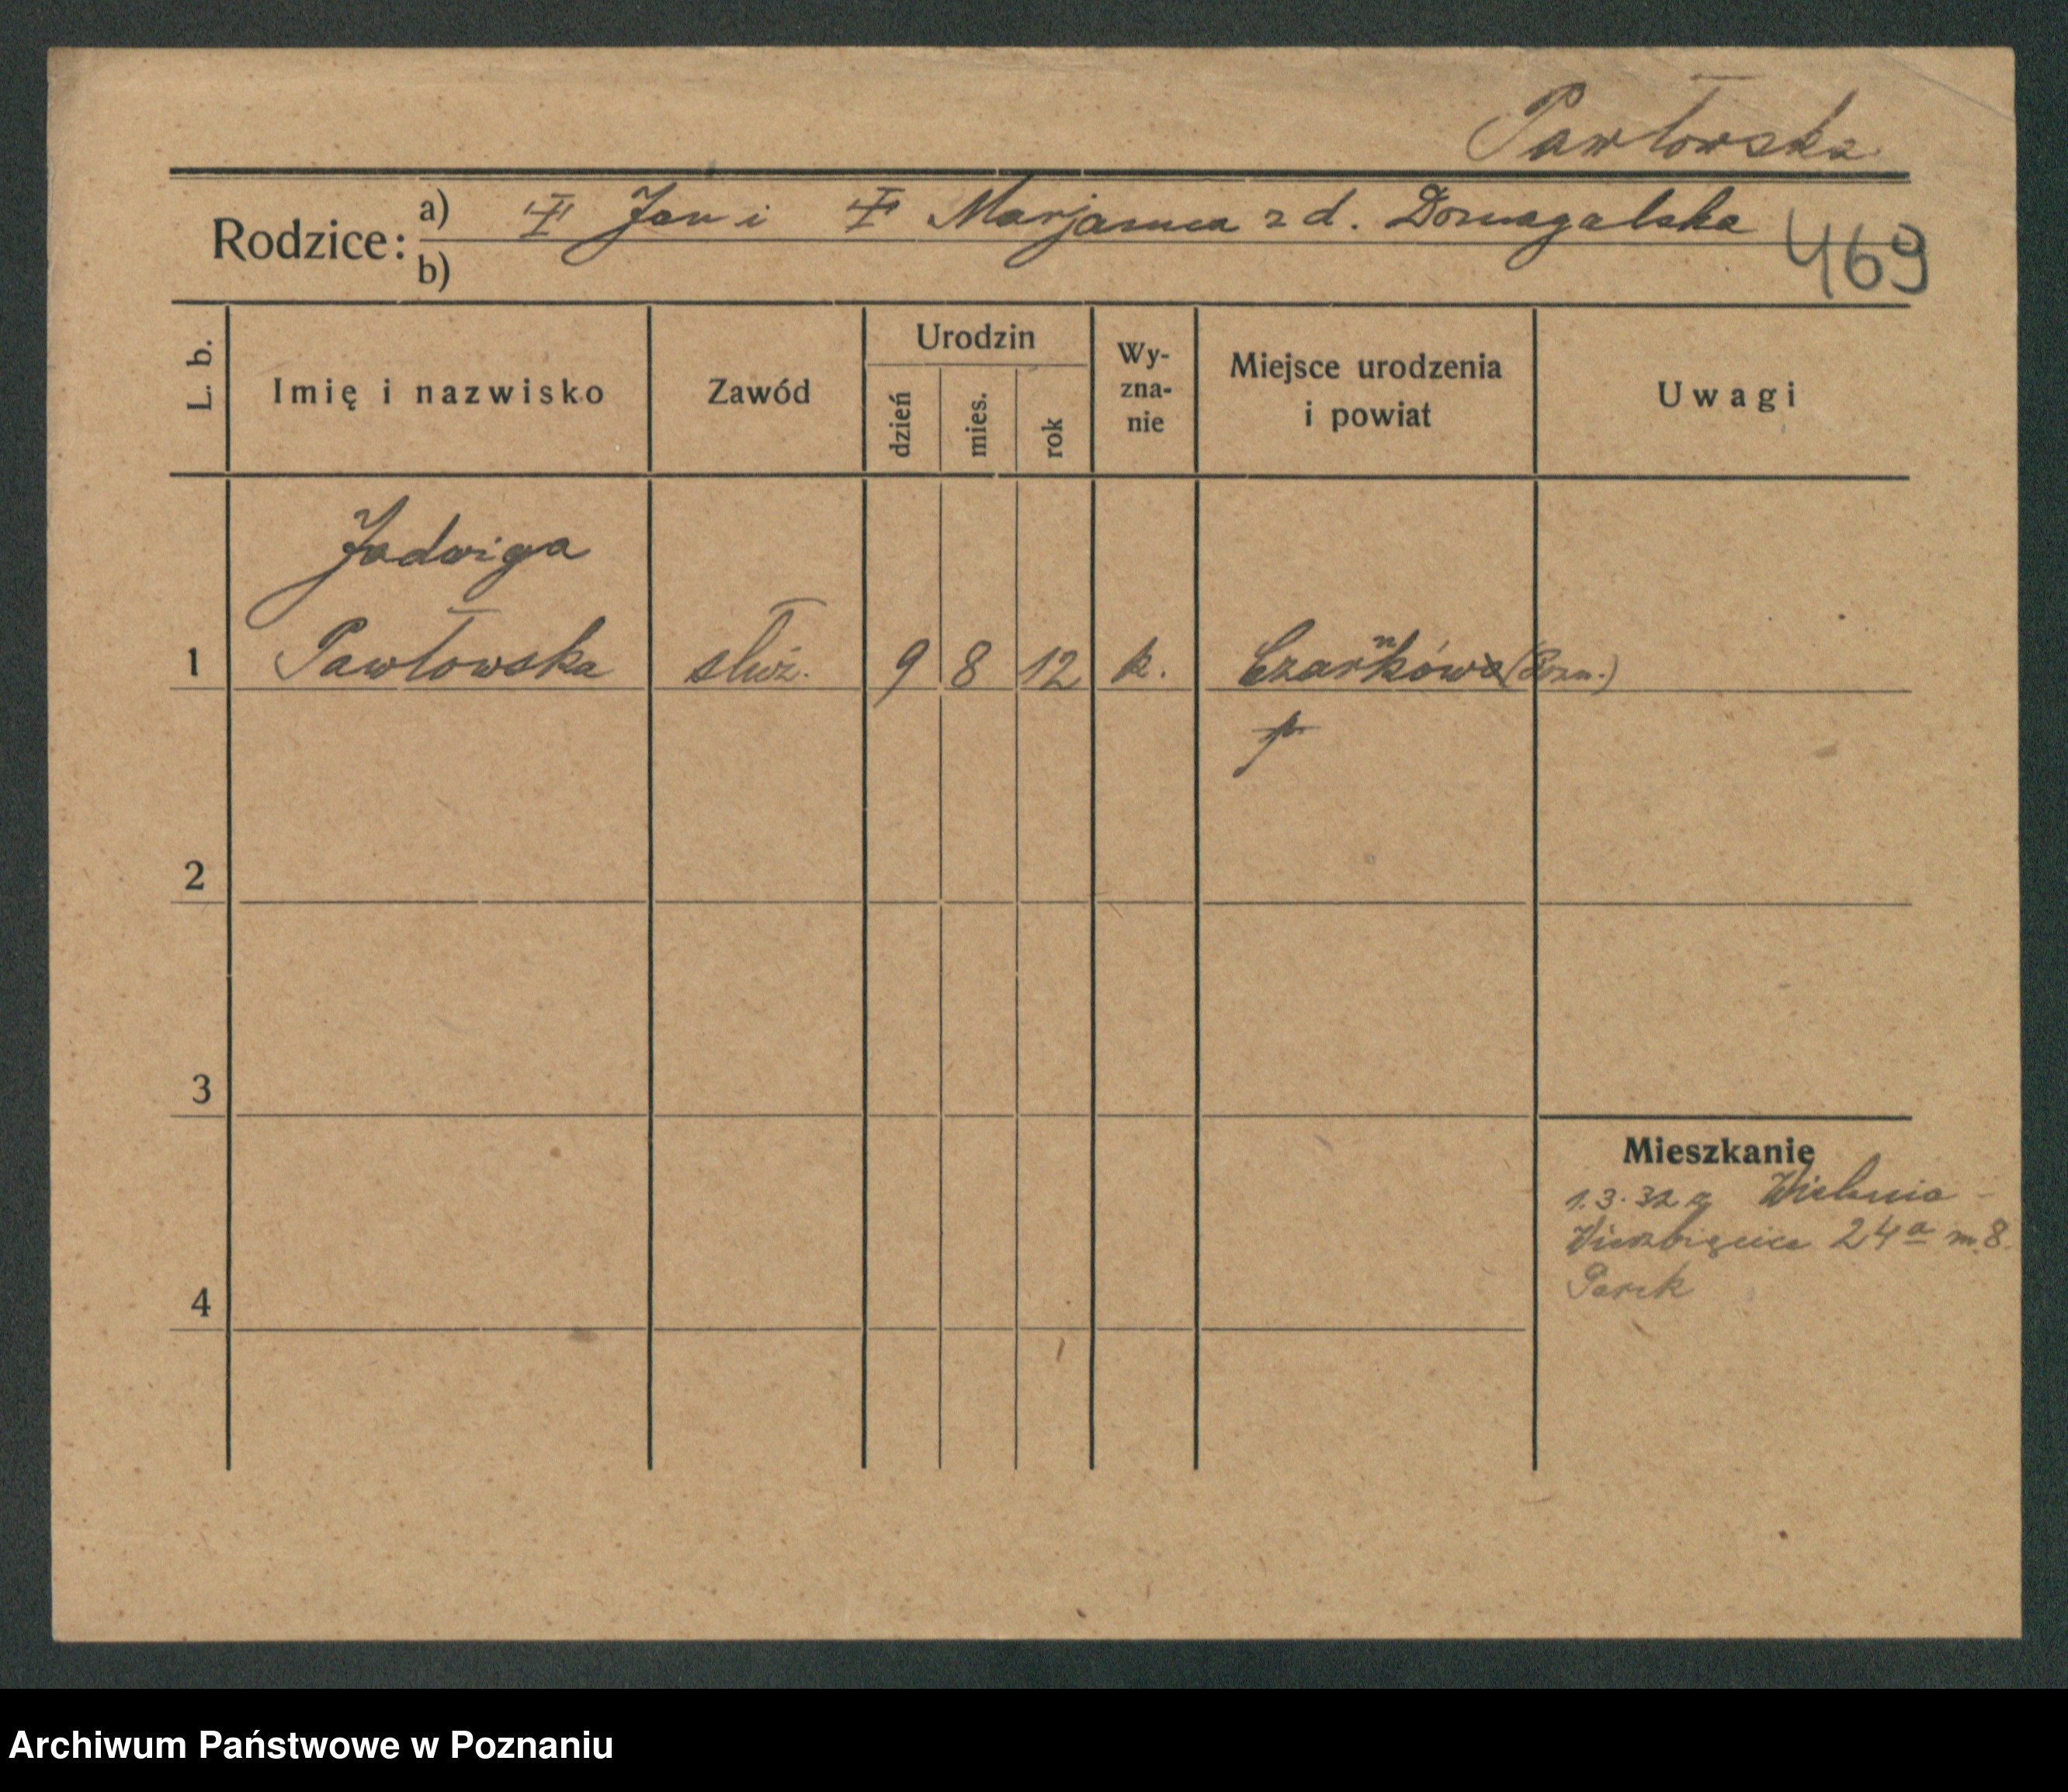 Pawłowska
Rodzice: a) Jan i Marjanna z d. Domagalska
b)
469
L. b.
Imię i nazwisko
Zawód
Urodzin
dzień
mies.
rok
Wy-
zna-
nie
Miejsce urodzenia
i powiat
Uwagi
Jadwiga
1 Pawłowska służ. 9 8 12 k. Czarnków (Pozn.)
p
2
3
Mieszkanie
1.3.32 z
Wierzbięcice 24a m. 8.
4
Archiwum Państwowe w Poznaniu